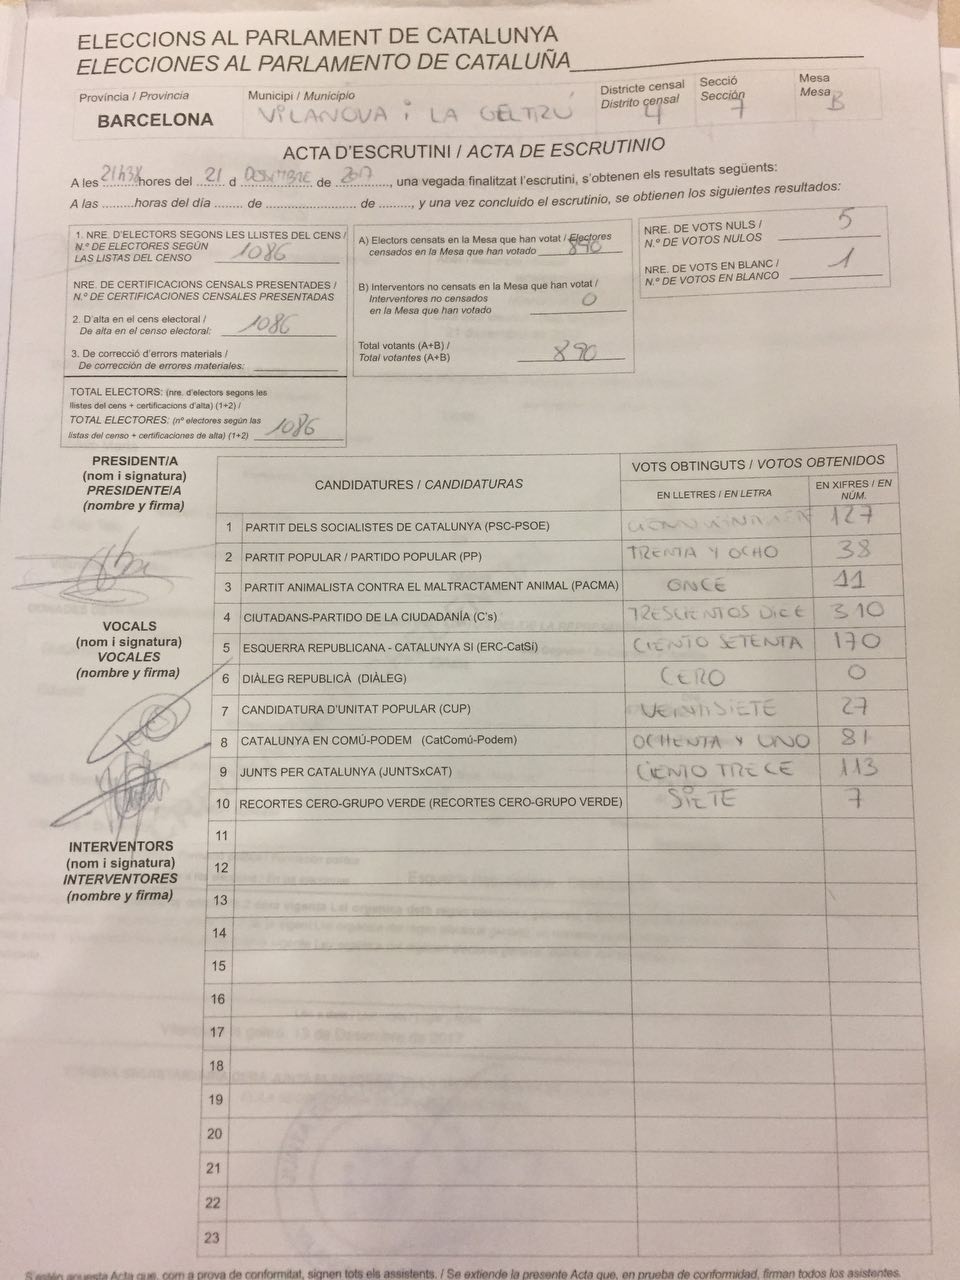 ELECCIONS AL PARLAMENT DE CATALUNYA
ELECCIONES AL PARLAMENTO DE CATALUÑA
Província / Provincia
BARCELONA
Municipi / Municipio
VILANOVA i LA GELTRÚ
Districte censal
Distrito censal
4
Secció
Sección
7
Mesa
Mesa
B
ACTA D'ESCRUTINI / ACTA DE ESCRUTINIO
A les 21h38 hores del 21 d DESEMBRE de 2017, una vegada finalitzat l'escrutini, s'obtenen els resultats següents:
A las .........horas del día ........ de ......................... de ........, y una vez concluido el escrutinio, se obtienen los siguientes resultados:
1. NRE. D'ELECTORS SEGONS LES LLISTES DEL CENS /
N.º DE ELECTORES SEGÚN
LAS LISTAS DEL CENSO 1086
NRE. DE CERTIFICACIONS CENSALS PRESENTADES /
N.º DE CERTIFICACIONES CENSALES PRESENTADAS
2. D'alta en el cens electoral /
De alta en el censo electoral: 1086
3. De correcció d'errors materials /
De corrección de errores materiales:
TOTAL ELECTORS: (nre. d'electors segons les
llistes del cens + certificacions d'alta) (1+2) /
TOTAL ELECTORES: (nº electores según las
listas del censo + certificaciones de alta) (1+2) 1086
A) Electors censats en la Mesa que han votat / Electores
censados en la Mesa que han votado 890
B) Interventors no censats en la Mesa que han votat /
Interventores no censados
en la Mesa que han votado 0
Total votants (A+B) /
Total votantes (A+B) 890
NRE. DE VOTS NULS /
N.º DE VOTOS NULOS 5
NRE. DE VOTS EN BLANC /
N.º DE VOTOS EN BLANCO 1
PRESIDENT/A
(nom i signatura)
PRESIDENTE/A
(nombre y firma)
VOCALS
(nom i signatura)
VOCALES
(nombre y firma)
INTERVENTORS
(nom i signatura)
INTERVENTORES
(nombre y firma)
CANDIDATURES / CANDIDATURAS
VOTS OBTINGUTS / VOTOS OBTENIDOS
EN LLETRES / EN LETRA
EN XIFRES / EN NÚM.
1 PARTIT DELS SOCIALISTES DE CATALUNYA (PSC-PSOE) 127
2 PARTIT POPULAR / PARTIDO POPULAR (PP) TRENTA Y OCHO 38
3 PARTIT ANIMALISTA CONTRA EL MALTRACTAMENT ANIMAL (PACMA) ONCE 11
4 CIUTADANS-PARTIDO DE LA CIUDADANÍA (C's) TRESCIENTOS DICE 310
5 ESQUERRA REPUBLICANA - CATALUNYA SI (ERC-CatSí) CIENTO SETENTA 170
6 DIÀLEG REPUBLICÀ (DIÀLEG) CERO 0
7 CANDIDATURA D'UNITAT POPULAR (CUP) VEINTISIETE 27
8 CATALUNYA EN COMÚ-PODEM (CatComú-Podem) OCHENTA Y UNO 81
9 JUNTS PER CATALUNYA (JUNTSxCAT) CIENTO TRECE 113
10 RECORTES CERO-GRUPO VERDE (RECORTES CERO-GRUPO VERDE) SIETE 7
11
12
13
14
15
16
17
18
19
20
21
22
23
S'estén aquesta Acta que, com a prova de conformitat, signen tots els assistents. / Se extiende la presente Acta que, en prueba de conformidad, firman todos los asistentes.